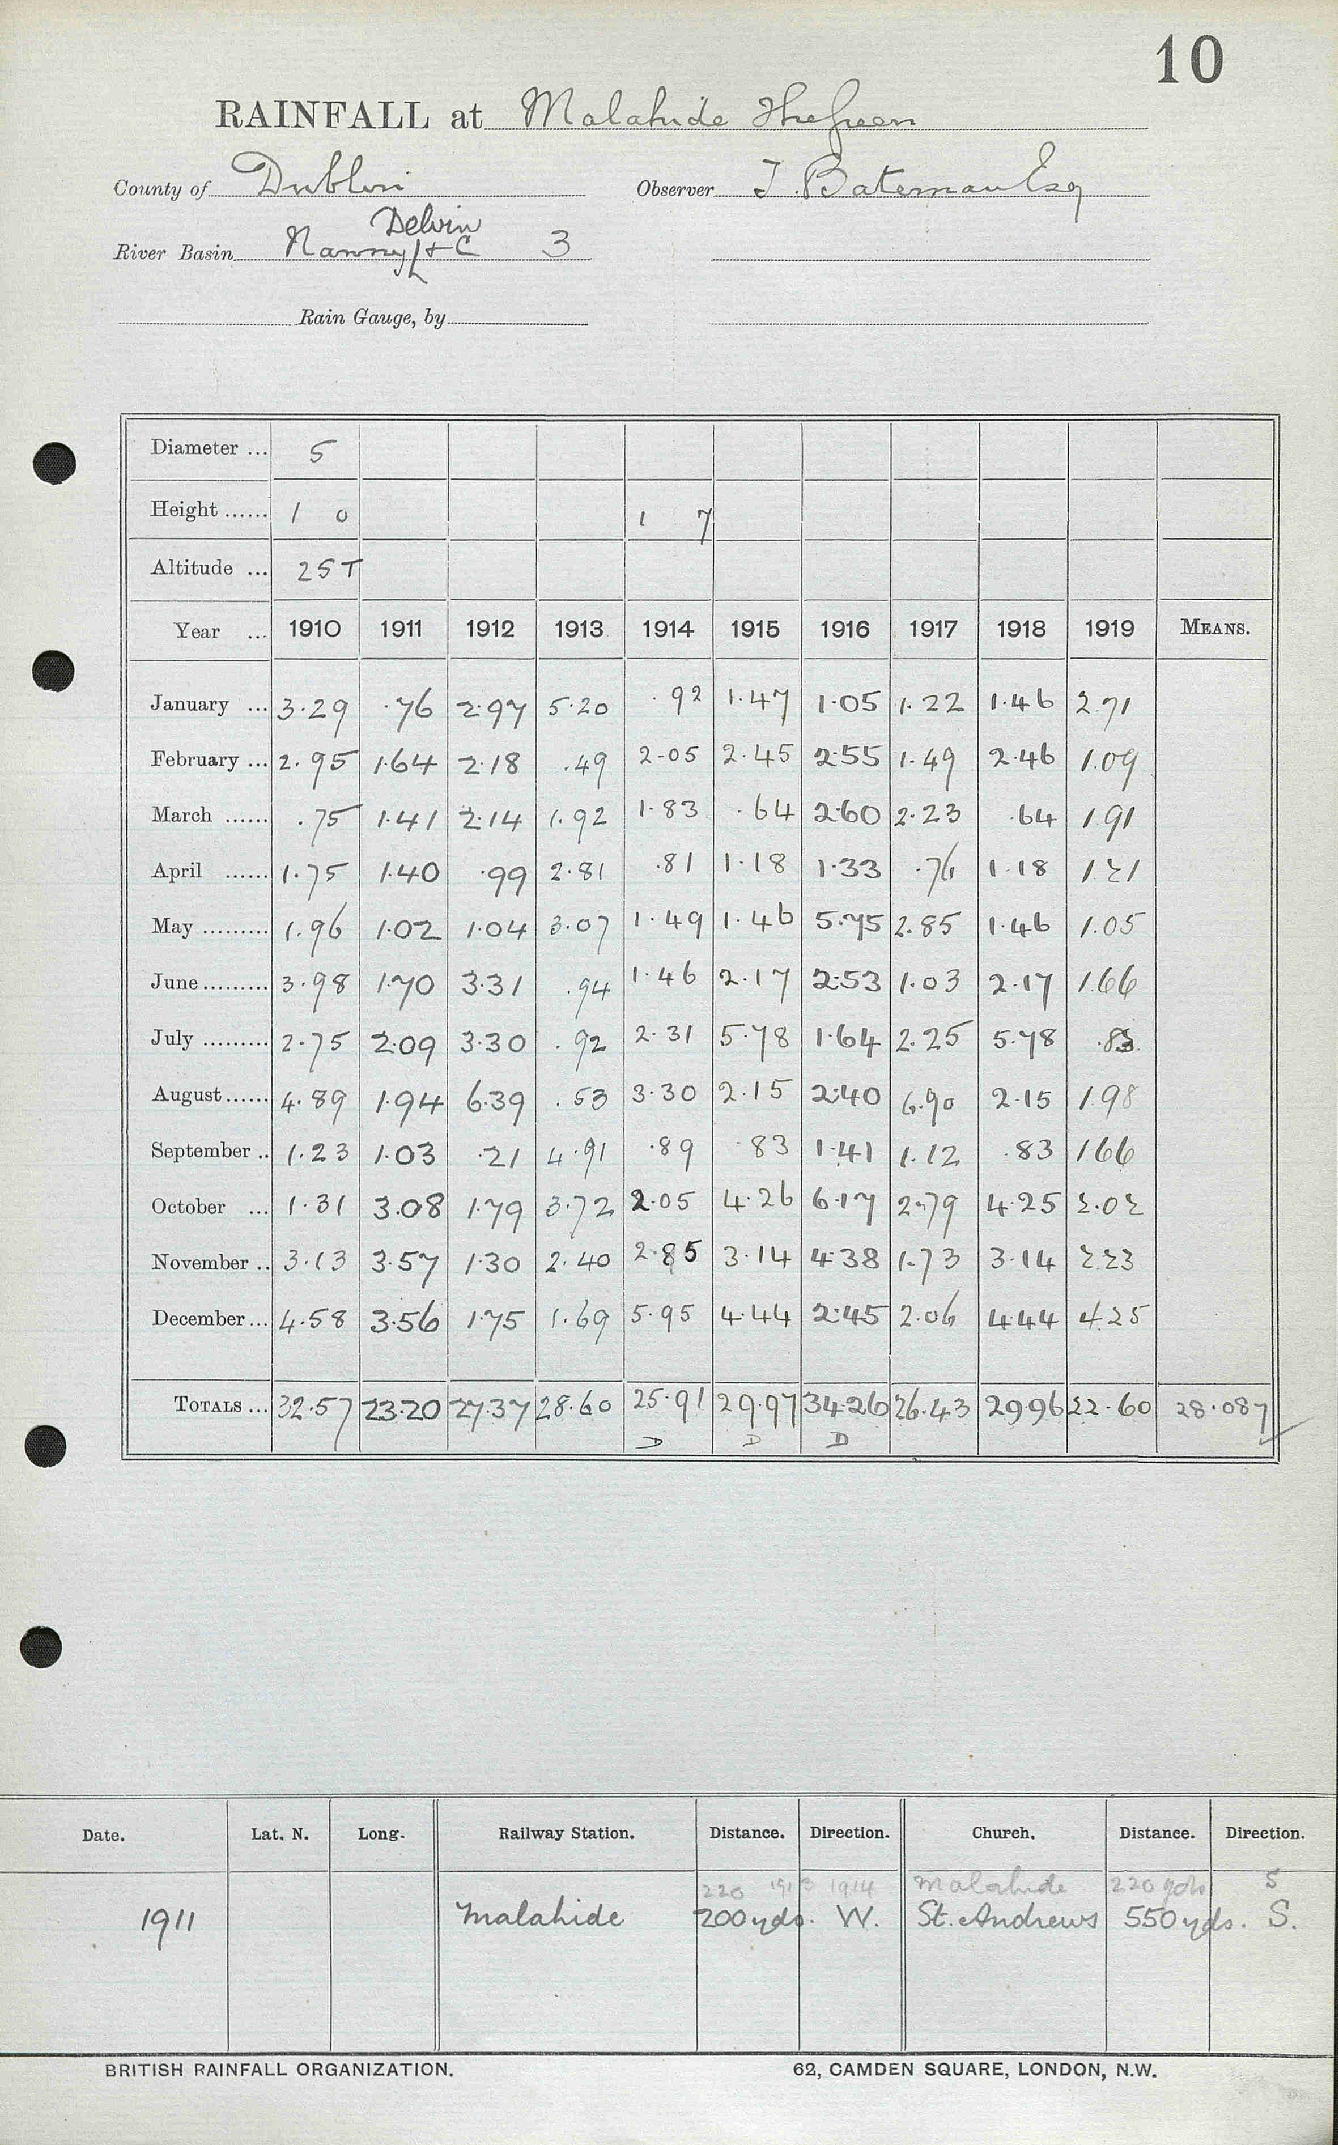 10
RAINFALL at Malahide The Green
County of Dublin Observer T. Bateman Esq
Delvin
River Basin Nanny & C 3
Rain Gauge, by
Diameter ... 5
Height ...... 1 0 1 7
Altitude ... 25 T
Year ... 1910 1911 1912 1913 1914 1915 1916 1917 1918 1919 MEANS.
January ... 3.29 .76 2.97 5.20 .92 1.47 1.05 1.22 1.46 2.71
February ... 2.95 1.64 2.18 .49 2.05 2.45 2.55 1.49 2.46 1.09
March ...... .75 1.41 2.14 1.92 1.83 .64 2.60 2.23 .64 1.91
April ...... 1.75 1.40 .99 2.81 .81 1.18 1.33 .76 1.18 1.21
May ......... 1.96 1.02 1.04 3.07 1.49 1.46 5.75 2.85 1.46 1.05
June ......... 3.98 1.70 3.31 .94 1.46 2.17 2.53 1.03 2.17 1.66
July ......... 2.75 2.09 3.30 .92 2.31 5.78 1.64 2.25 5.78 .83
August ...... 4.89 1.94 6.39 .53 3.30 2.15 2.40 6.90 2.15 1.98
September .. 1.23 1.03 .21 4.91 .89 .83 1.41 1.12 .83 1.66
October ... 1.31 3.08 1.79 3.72 2.05 4.26 6.17 2.79 4.25 2.02
November .. 3.13 3.57 1.30 2.40 2.85 3.14 4.38 1.73 3.14 2.23
December ... 4.58 3.56 1.75 1.69 5.95 4.44 2.45 2.06 4.44 4.25
TOTALS ... 32.57 23.20 27.37 28.60 25.91 29.97 34.26 26.43 29.96 22.60 28.087
D D D
Date. Lat. N. Long. Railway Station. Distance. Direction. Church. Distance. Direction.
220 1913 1914 Malahide 220 yds S
1911 Malahide 200 yds. W. St. Andrews 550 yds. S.
BRITISH RAINFALL ORGANIZATION. 62, CAMDEN SQUARE, LONDON, N.W.